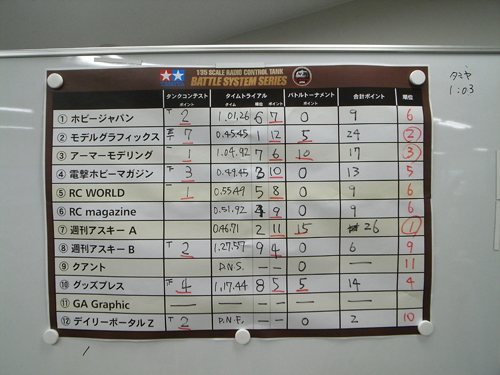 1:35 SCALE RADIO CONTROL TANK
BATTLE SYSTEM SERIES
タンクコンテスト タイムトライアル バトルトーナメント 合計ポイント 順位
ポイント タイム 順位 ポイント ポイント
① ホビージャパン T 2 1.01.26 6 7 0 9 6
② モデルグラフィックス 7 0.45.45 1 12 5 24 2
③ アーマーモデリング 1 1.04.92 7 6 10 17 3
④ 電撃ホビーマガジン T 3 0.49.45 3 10 0 13 5
⑤ RC WORLD 1 0.55.49 5 8 0 9 6
⑥ RC magazine 0.51.92 4 9 0 9 6
⑦ 週刊アスキー A 0.46.71 2 11 15 26 1
⑧ 週刊アスキー B T 2 1.27.57 9 4 0 6 9
⑨ クアント D.N.S. — — 0 — 11
⑩ グッズプレス 4 1.17.44 8 5 5 14 4
⑪ GA Graphic — — — — — — —
⑫ デイリーポータル Z T 2 D.N.F. — — 0 2 10
タミヤ
1:03